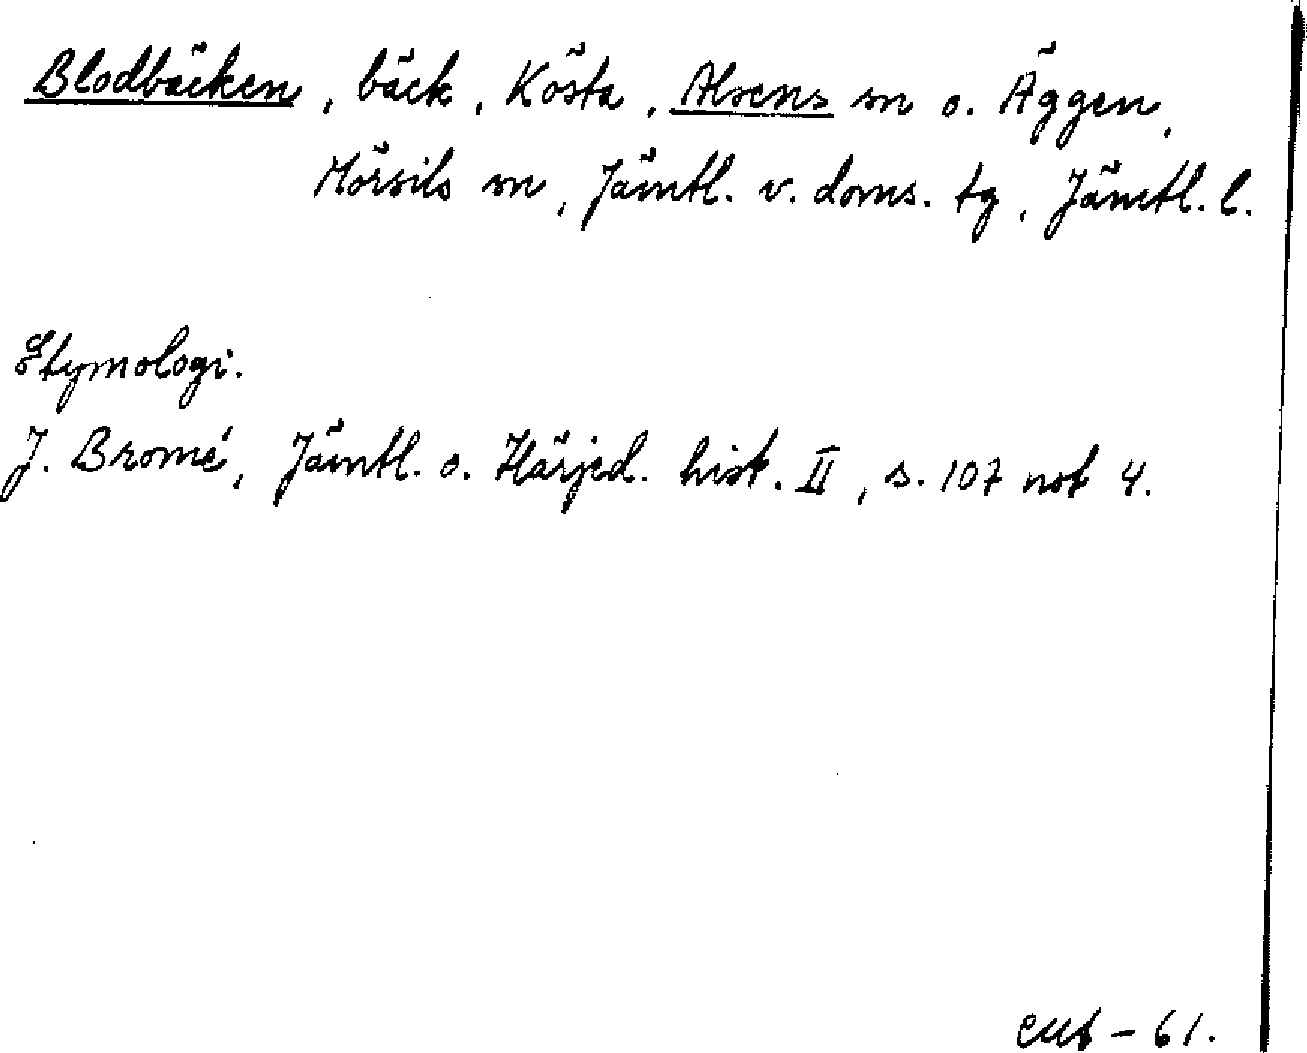 Blodbäcken, bäck, Kösta, Alsens sn o. Äggen,
Mörsils sn, Jämtl. v. doms. tg, Jämtl. l.
Etymologi.
J. Bromé, Jämtl. o. Härjed. hist. II, s. 107 not 4.
61.